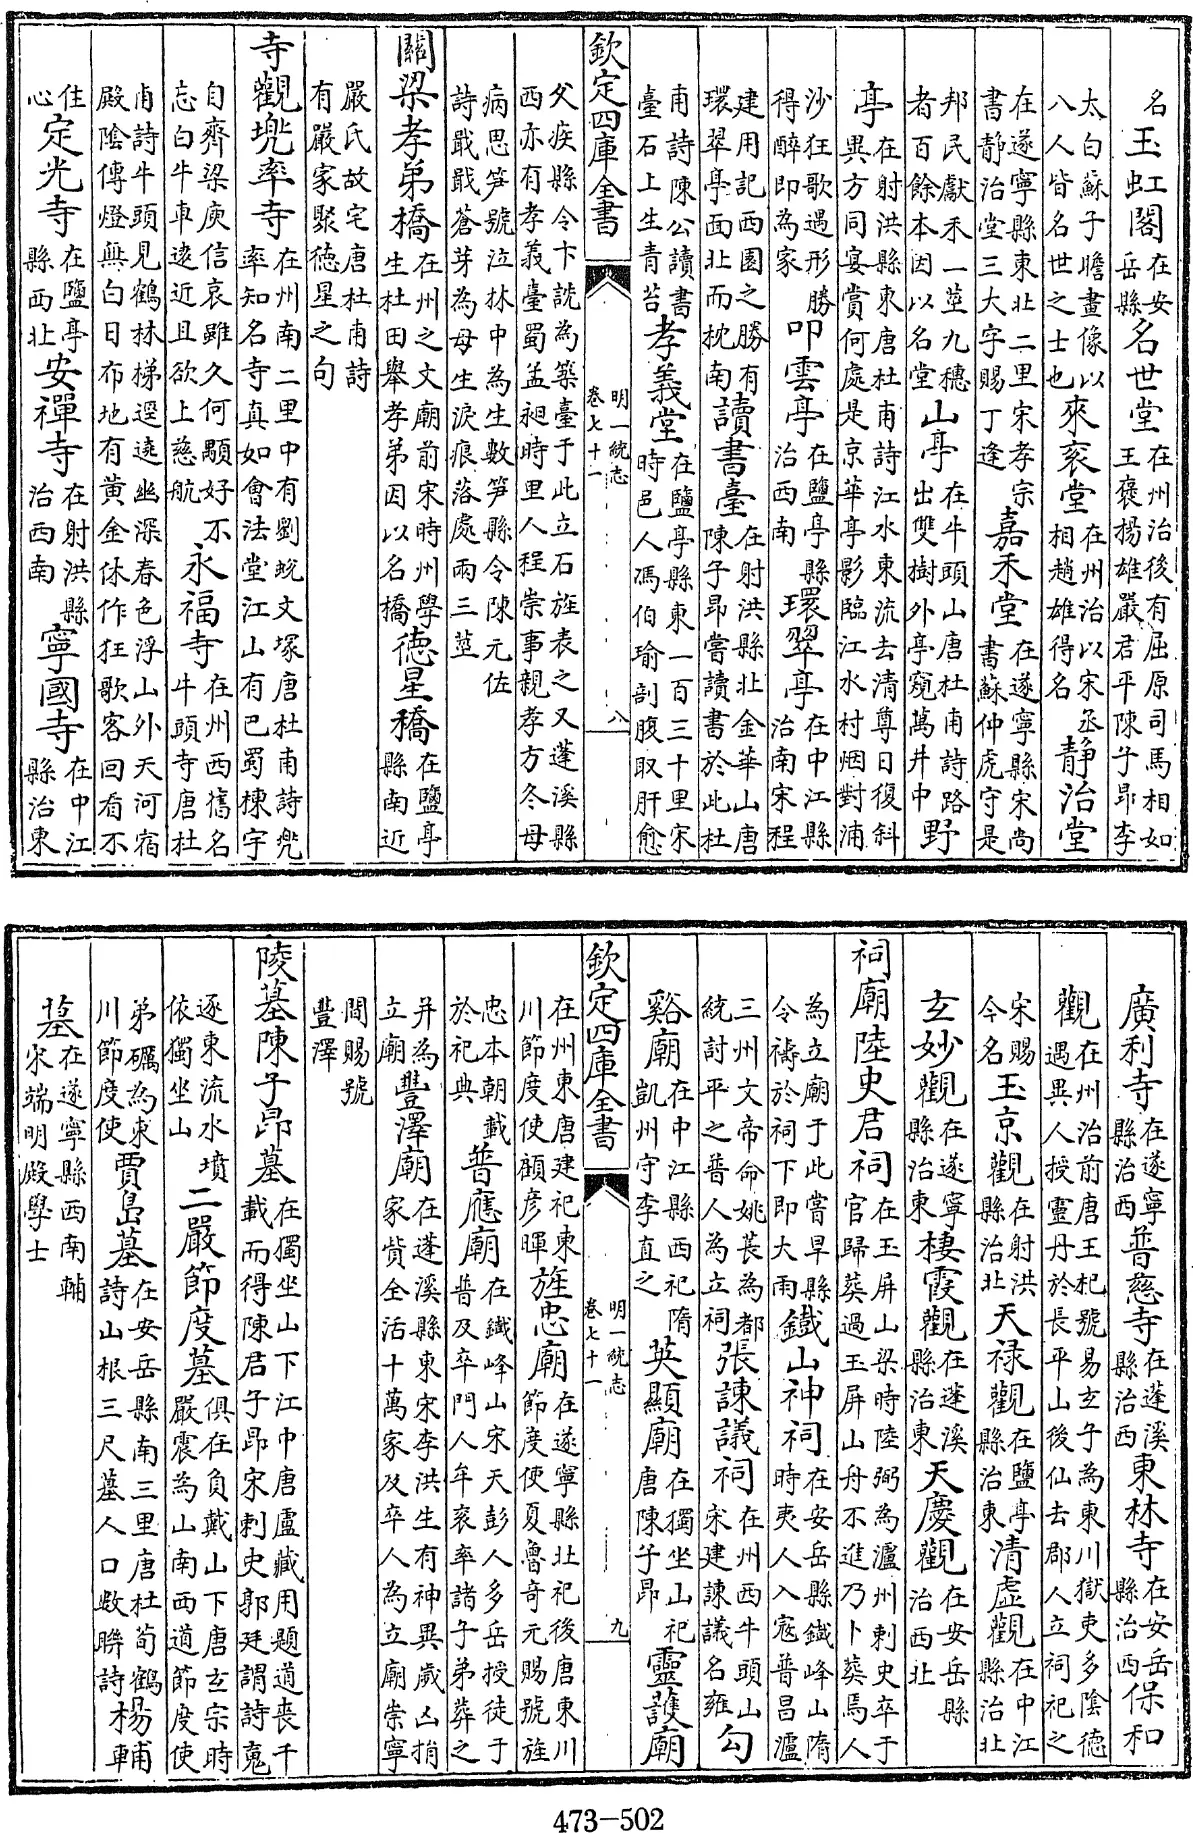 名玉虹閣在安岳縣名世堂在州治後有屈原司馬相如王褒揚雄嚴君平陳子昂李
太白蘇子瞻畫像以八人皆名世之士也來衮堂在州治以宋丞相趙雄得名静治堂
在遂寧縣東北二里宋孝宗書静治堂三大字賜丁逢嘉禾堂在遂寧縣宋尚書蘇仲虎守是
邦民獻禾一莖九穗者百餘本因以名堂山亭在牛頭山唐杜甫詩路出雙樹外亭窺萬井中野
亭在射洪縣東唐杜甫詩江水東流去清尊日復斜異方同宴賞何處是京華亭影臨江水村烟對浦
沙狂歌遇形勝得醉即為家叩雲亭在鹽亭縣治西南環翠亭在中江縣治南宋程
建用記西園之勝有環翠亭面北而枕南讀書臺在射洪縣北金華山唐陳子昂嘗讀書於此杜
甫詩陳公讀書臺石上生青苔孝義堂在鹽亭縣東一百三十里宋時邑人馮伯瑜剖腹取肝愈
欽定四庫全書 明一統志卷七十一 八
父疾縣令卞詵為築臺于此立石旌表之又蓬溪縣西亦有孝義臺蜀孟昶時里人程崇事親孝方冬母
病思笋號泣林中為生數笋縣令陳元佐詩戢戢蒼芽為母生淚痕落處兩三莖
關梁孝弟橋在州之文廟前宋時州學生杜田舉孝弟因以名橋德星橋在鹽亭縣南近
嚴氏故宅唐杜甫詩有嚴家聚德星之句
寺觀兜率寺在州南二里中有劉蛻文塚唐杜甫詩兜率知名寺真如會法堂江山有巴蜀棟宇
自齊梁庾信哀雖久何顒好不忘白牛車遠近且欲上慈航永福寺在州西舊名牛頭寺唐杜
甫詩牛頭見鶴林梯逕遶幽深春色浮山外天河宿殿陰傳燈無白日布地有黄金休作狂歌客回看不
住心定光寺在鹽亭縣西北安禪寺在射洪縣治西南寧國寺在中江縣治東
廣利寺在遂寧縣治西普慈寺在蓬溪縣治西東林寺在安岳縣治西保和
觀在州治前唐王杞號易玄子為東川獄吏多陰德遇異人授靈丹於長平山後仙去郡人立祠祀之
宋賜今名玉京觀在射洪縣治北天禄觀在鹽亭縣治東清虚觀在中江縣治北
玄妙觀在遂寧縣治東棲霞觀在蓬溪縣治東天慶觀在安岳縣治西北
祠廟陸史君祠在玉屏山梁時陸弼為瀘州刺史卒于官歸葬過玉屏山舟不進乃卜葬焉人
為立廟于此嘗旱縣令禱於祠下即大雨鐵山神祠在安岳縣鐵峰山隋時夷人入寇普昌瀘
三州文帝命姚萇為都統討平之普人為立祠張諫議祠在州西牛頭山宋建諫議名雍勾
谿廟在中江縣西祀隋凱州守李直之英顯廟在獨坐山祀唐陳子昂靈護廟
欽定四庫全書 明一統志卷七十一 九
在州東唐建祀東川節度使顧彦暉旌忠廟在遂寧縣北祀後唐東川節度使夏魯奇元賜號旌
忠本朝載於祀典普應廟在鐵峰山宋天彭人多岳授徒于普及卒門人年衮率諸子弟葬之
并為立廟豐澤廟在蓬溪縣東宋李洪生有神異歲凶捐家貲全活十萬家及卒人為立廟崇寧
間賜號豐澤
陵墓陳子昂墓在獨坐山下江中唐盧藏用題道喪千載而得陳君子昂宋刺史郭廷謂詩寃
逐東流水墳依獨坐山二嚴節度墓俱在負戴山下唐玄宗時嚴震為山南西道節度使
弟礪為東川節度使賈島墓在安岳縣南三里唐杜荀鶴詩山根三尺墓人口數聯詩楊輔
墓在遂寧縣西南輔宋端明殿學士
473-502